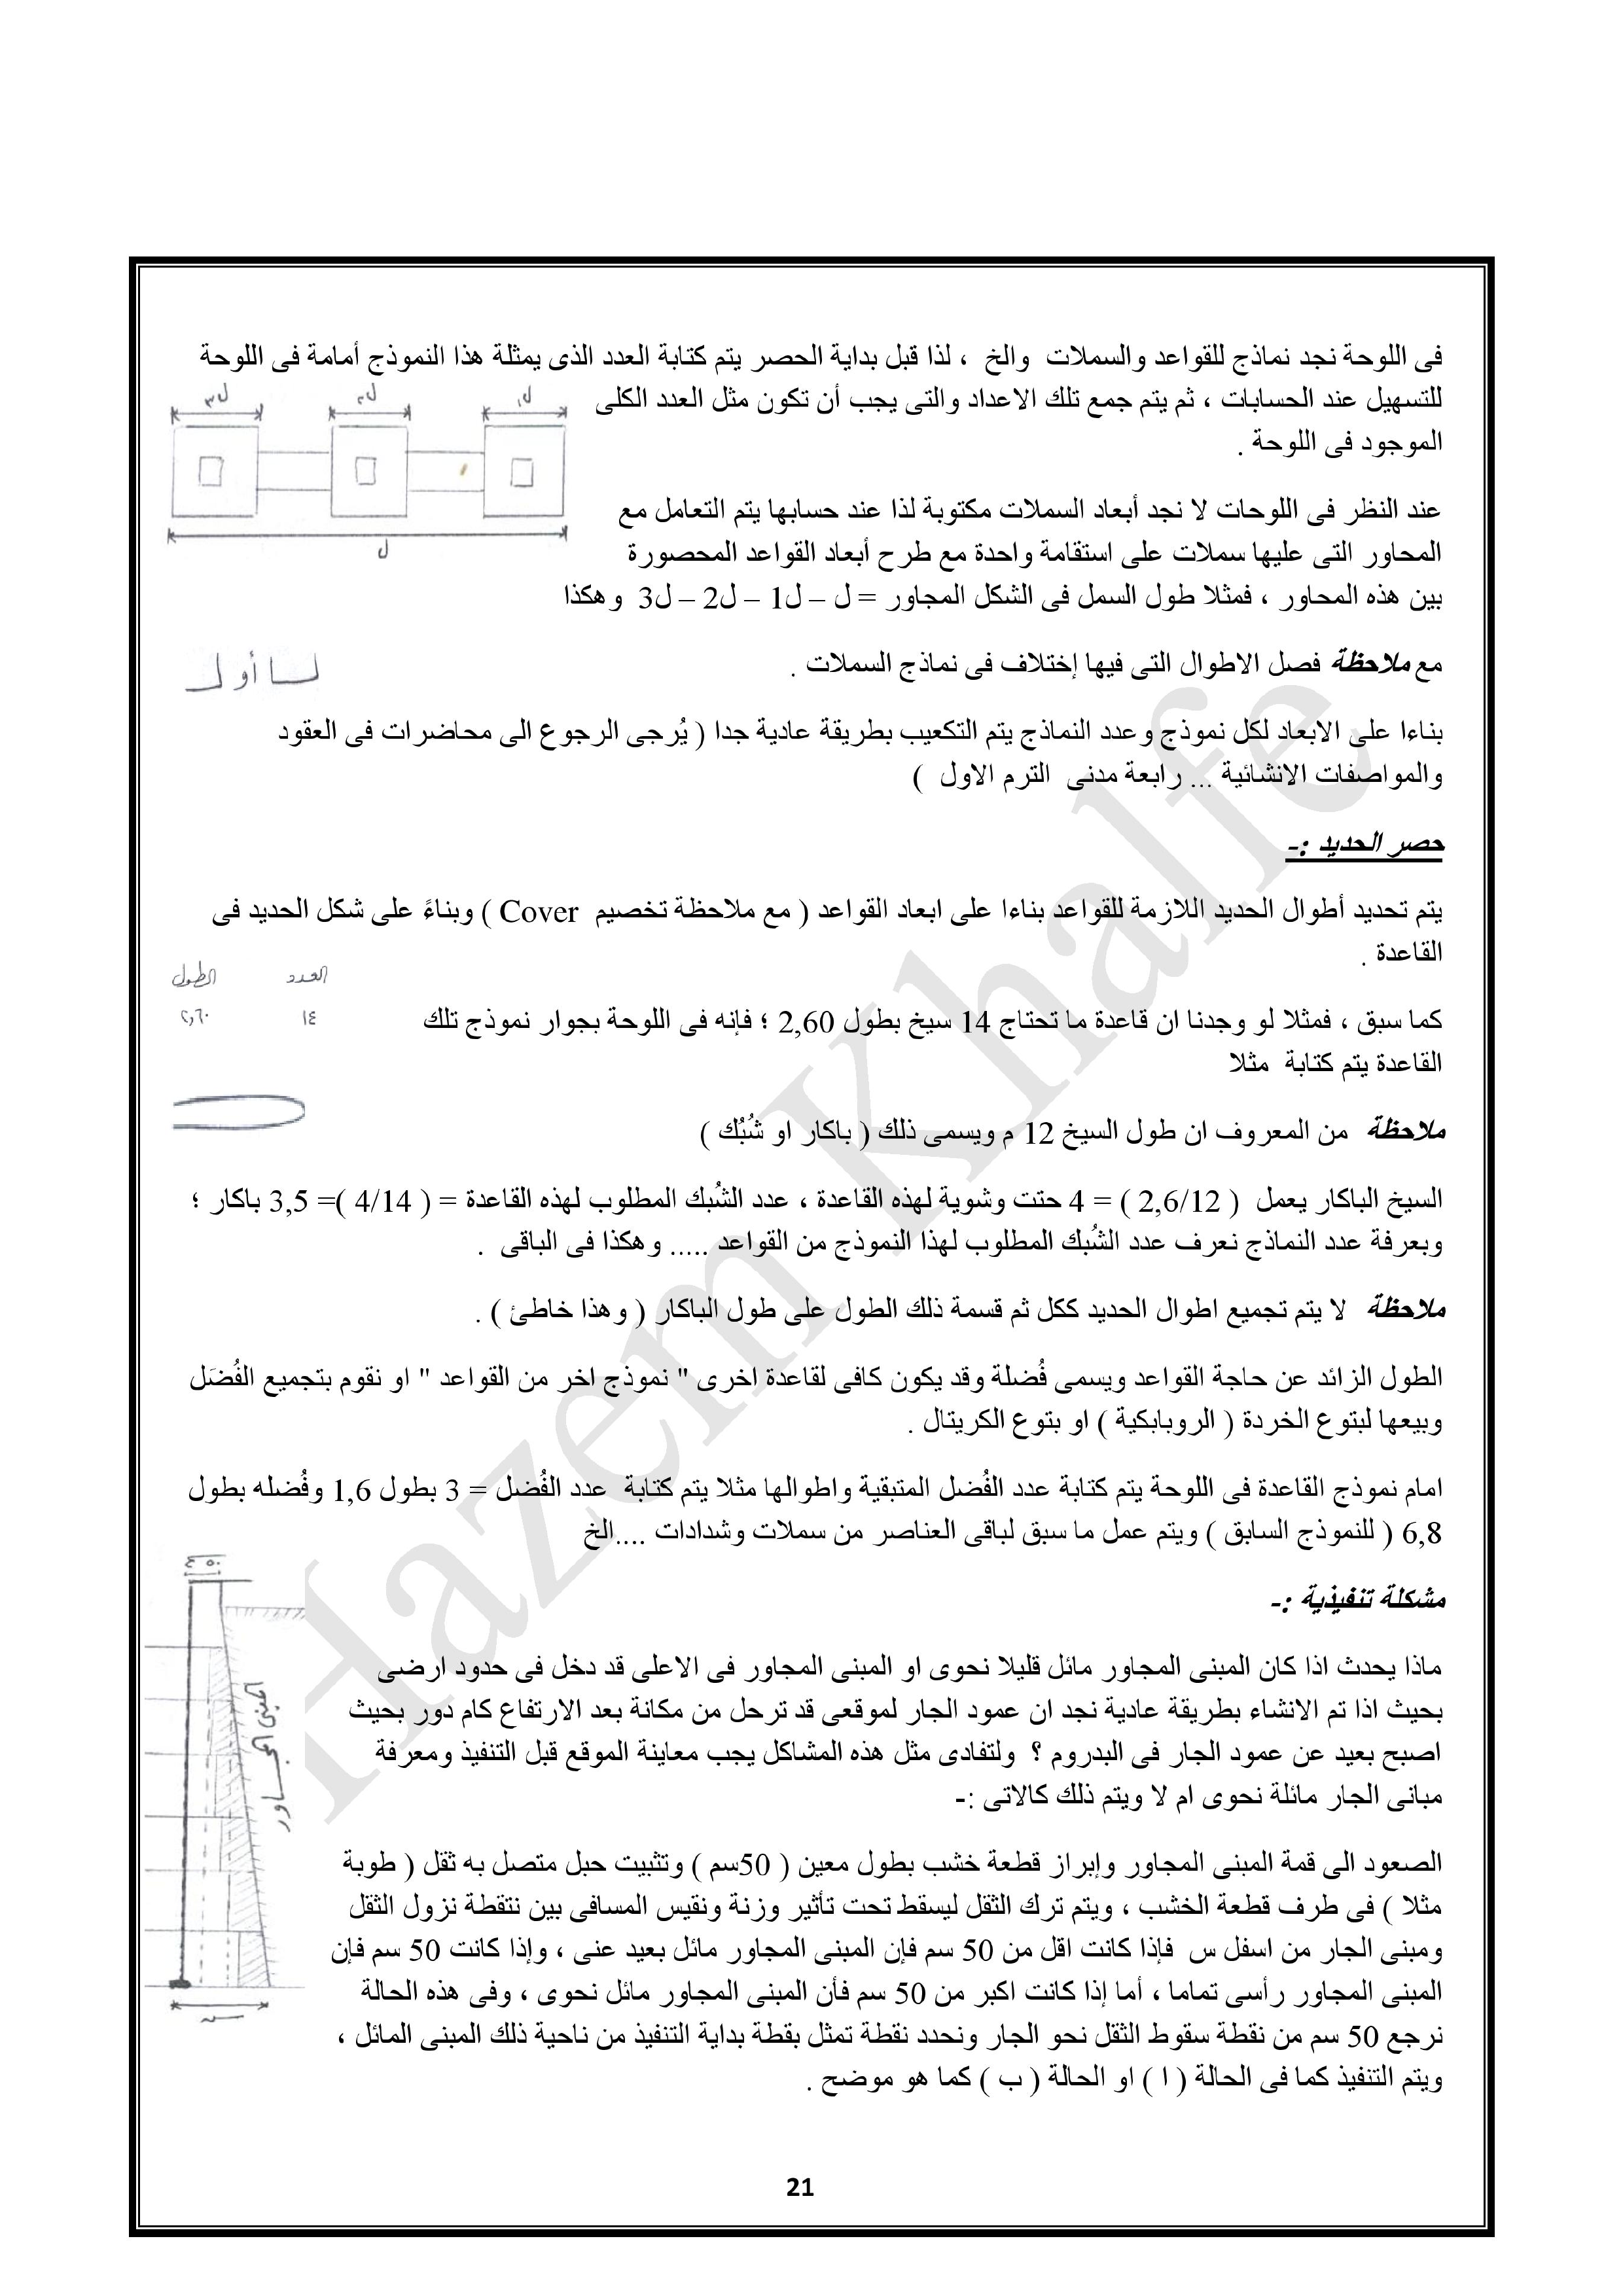 فى اللوحة نجد نماذج للقواعد والسملات والخ ، لذا قبل بداية الحصر يتم كتابة العدد الذى يمثلة هذا النموذج أمامة فى اللوحة
للتسهيل عند الحسابات ، ثم يتم جمع تلك الاعداد والتى يجب أن تكون مثل العدد الكلى
الموجود فى اللوحة .
ل1
ل2
ل3
ل
عند النظر فى اللوحات لا نجد أبعاد السملات مكتوبة لذا عند حسابها يتم التعامل مع
المحاور التى عليها سملات على استقامة واحدة مع طرح أبعاد القواعد المحصورة
بين هذه المحاور ، فمثلا طول السمل فى الشكل المجاور = ل – ل1 – ل2 – ل3 وهكذا
مع ملاحظة فصل الاطوال التى فيها إختلاف فى نماذج السملات .
بناءا على الابعاد لكل نموذج وعدد النماذج يتم التكعيب بطريقة عادية جدا ( يُرجى الرجوع الى محاضرات فى العقود
والمواصفات الانشائية ... رابعة مدنى الترم الاول )
حصر الحديد :-
يتم تحديد أطوال الحديد اللازمة للقواعد بناءا على ابعاد القواعد ( مع ملاحظة تخصيم Cover ) وبناءً على شكل الحديد فى
القاعدة .
العدد الطول
١٤ ٢,٦٠
كما سبق ، فمثلا لو وجدنا ان قاعدة ما تحتاج 14 سيخ بطول 2,60 ؛ فإنه فى اللوحة بجوار نموذج تلك
القاعدة يتم كتابة مثلا
ملاحظة من المعروف ان طول السيخ 12 م ويسمى ذلك ( باكار او شُبُك )
السيخ الباكار يعمل ( 2,6/12 ) = 4 حتت وشوية لهذه القاعدة ، عدد الشُبك المطلوب لهذه القاعدة = ( 4/14 )= 3,5 باكار ؛
وبعرفة عدد النماذج نعرف عدد الشُبك المطلوب لهذا النموذج من القواعد ..... وهكذا فى الباقى .
ملاحظة لا يتم تجميع اطوال الحديد ككل ثم قسمة ذلك الطول على طول الباكار ( وهذا خاطئ ) .
الطول الزائد عن حاجة القواعد ويسمى فُضلة وقد يكون كافى لقاعدة اخرى " نموذج اخر من القواعد " او نقوم بتجميع الفُضَل
وبيعها لبتوع الخردة ( الروبابكية ) او بتوع الكريتال .
امام نموذج القاعدة فى اللوحة يتم كتابة عدد الفُضل المتبقية واطوالها مثلا يتم كتابة عدد الفُضل = 3 بطول 1,6 وفُضله بطول
6,8 ( للنموذج السابق ) ويتم عمل ما سبق لباقى العناصر من سملات وشدادات ....الخ
مشكلة تنفيذية :-
ماذا يحدث اذا كان المبنى المجاور مائل قليلا نحوى او المبنى المجاور فى الاعلى قد دخل فى حدود ارضى
بحيث اذا تم الانشاء بطريقة عادية نجد ان عمود الجار لموقعى قد ترحل من مكانة بعد الارتفاع كام دور بحيث
اصبح بعيد عن عمود الجار فى البدروم ؟ ولتفادى مثل هذه المشاكل يجب معاينة الموقع قبل التنفيذ ومعرفة
مبانى الجار مائلة نحوى ام لا ويتم ذلك كالاتى :-
المبنى المجاور
الصعود الى قمة المبنى المجاور وإبراز قطعة خشب بطول معين ( 50سم ) وتثبيت حبل متصل به ثقل ( طوبة
مثلا ) فى طرف قطعة الخشب ، ويتم ترك الثقل ليسقط تحت تأثير وزنة ونقيس المسافى بين نتقطة نزول الثقل
ومبنى الجار من اسفل س فإذا كانت اقل من 50 سم فإن المبنى المجاور مائل بعيد عنى ، وإذا كانت 50 سم فإن
المبنى المجاور رأسى تماما ، أما إذا كانت اكبر من 50 سم فأن المبنى المجاور مائل نحوى ، وفى هذه الحالة
نرجع 50 سم من نقطة سقوط الثقل نحو الجار ونحدد نقطة تمثل بقطة بداية التنفيذ من ناحية ذلك المبنى المائل ،
ويتم التنفيذ كما فى الحالة ( ا ) او الحالة ( ب ) كما هو موضح .
س
Hazem Khalfe
21